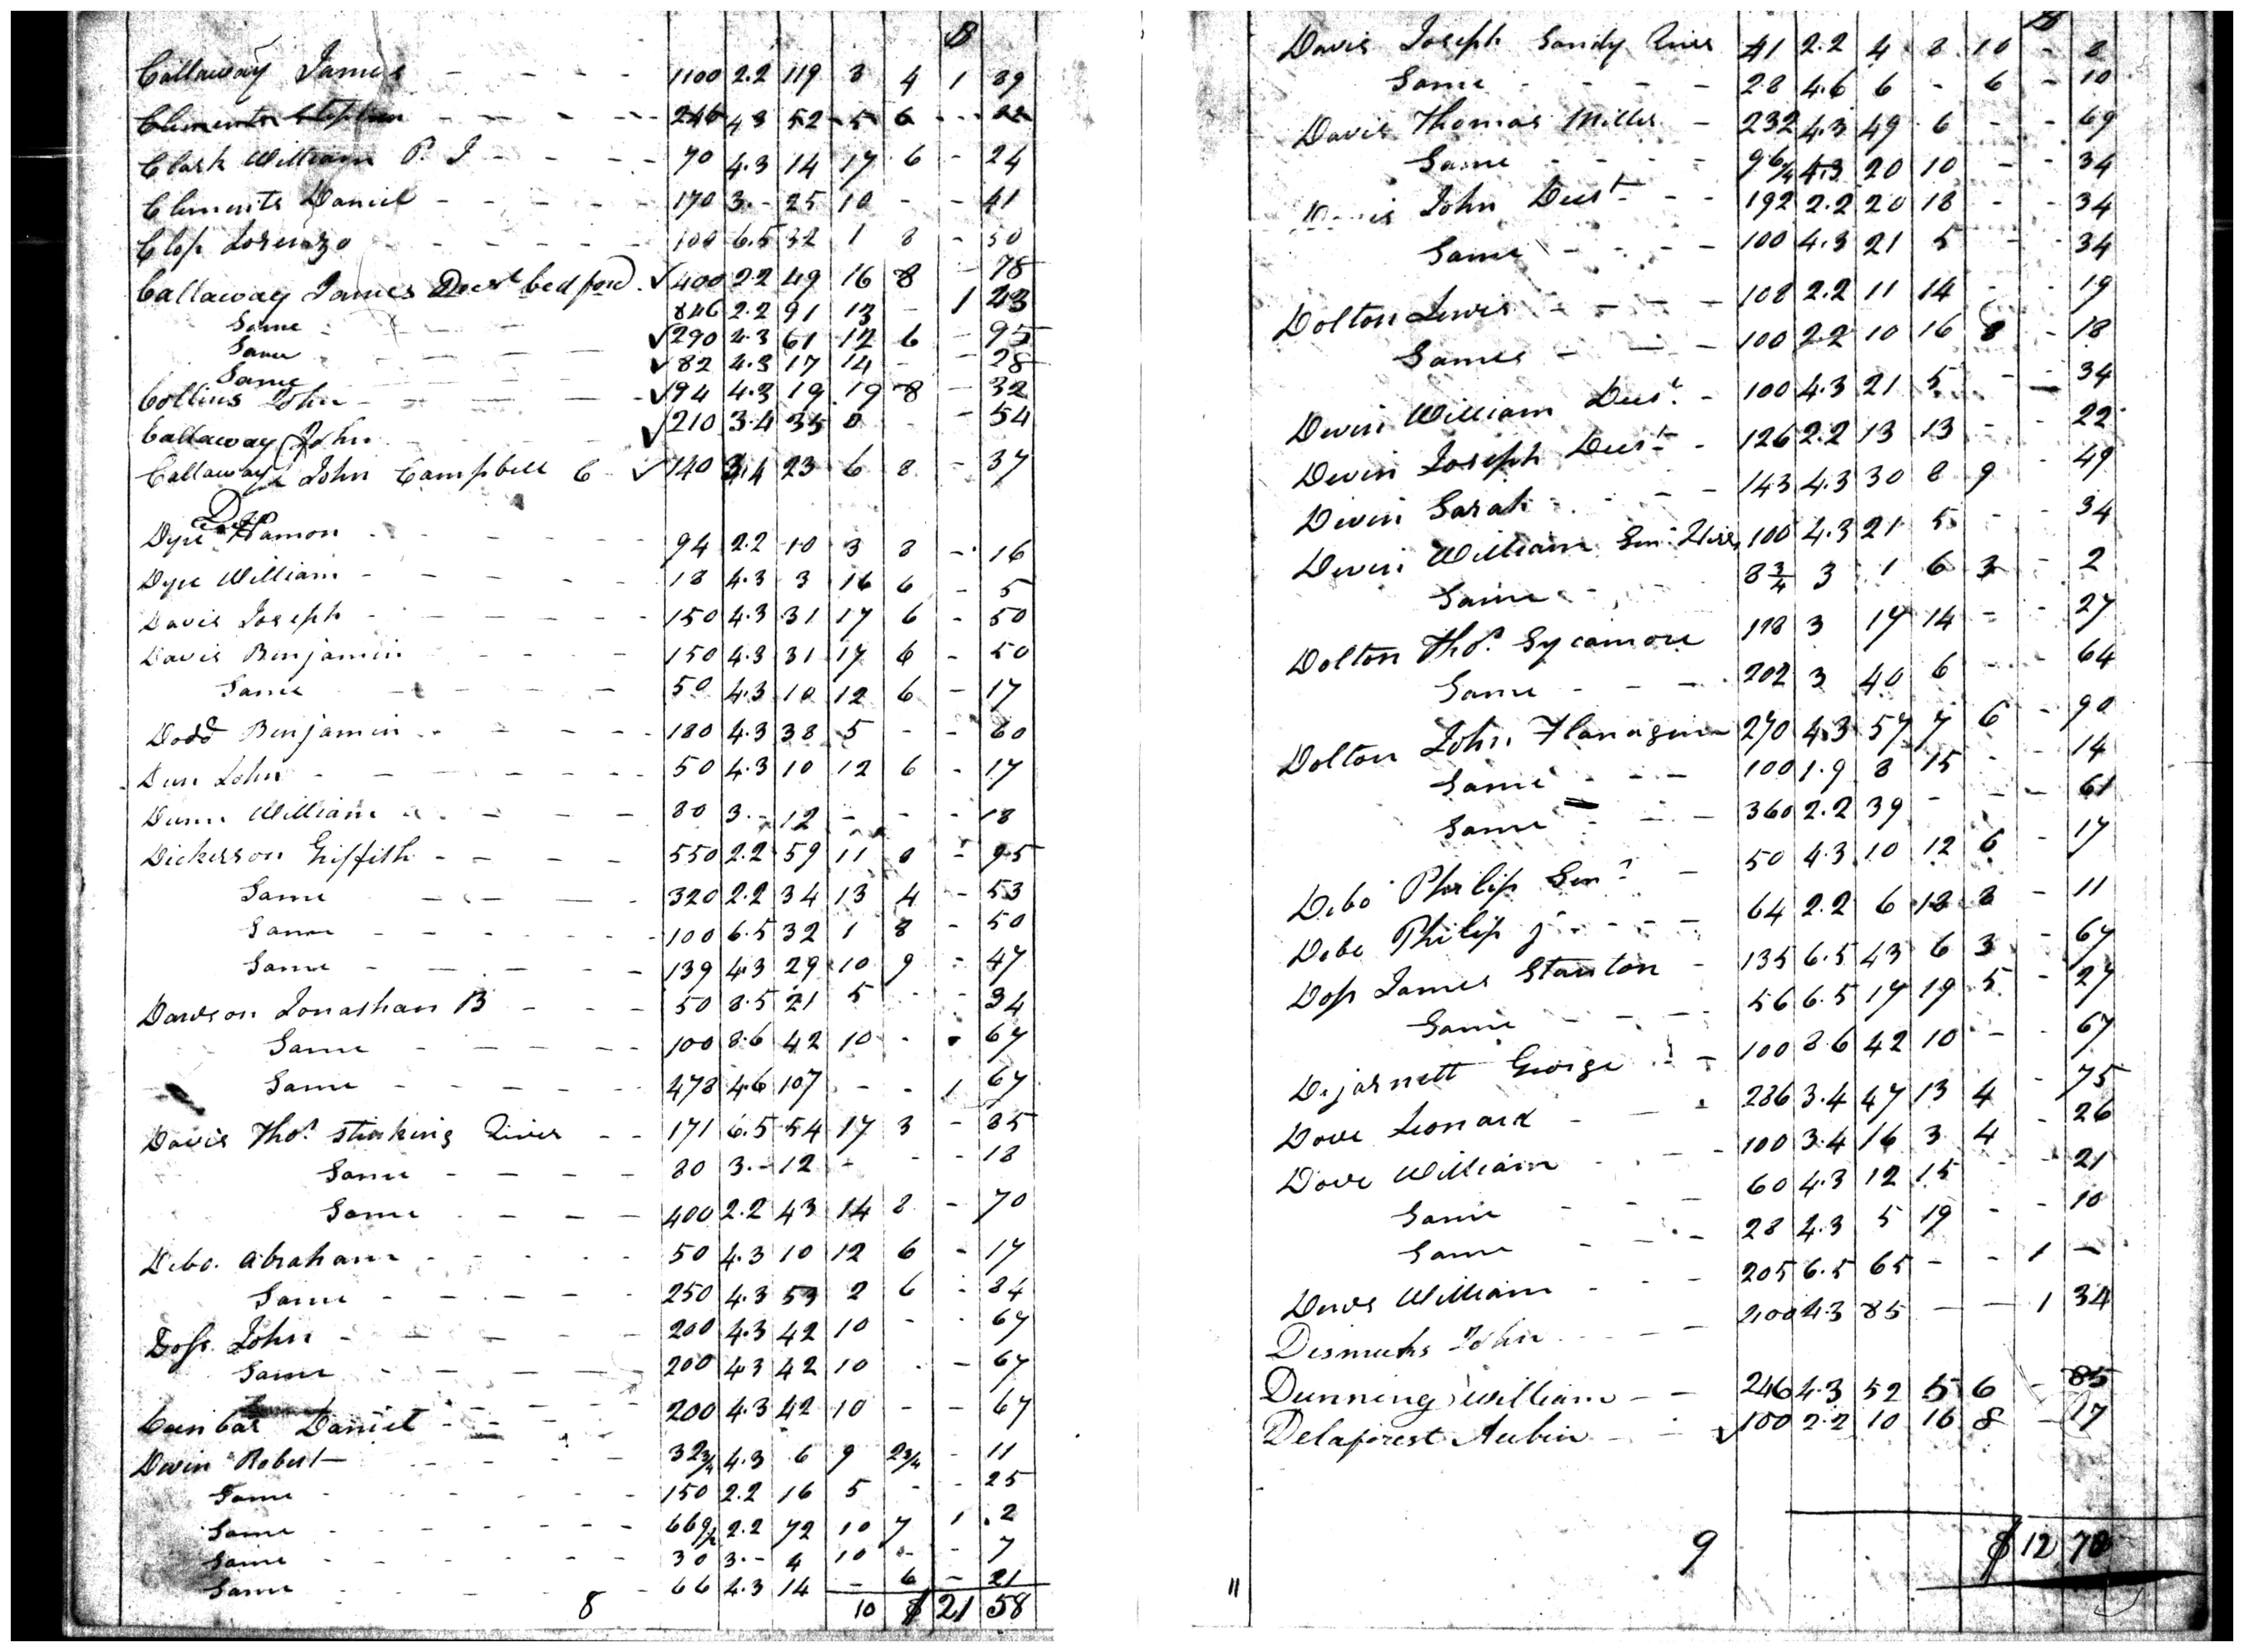 B
Callaway James - - - - 1100 2.2 119 3 4 1 89
Clements Stephen - - - - 246 4.3 52 5 6 - 82
Clark William P. J - - - - 70 4.3 14 17 6 - 24
Clements Daniel - - - - 170 3.- 25 10 - - 41
Clop Lorenzo - - - - 100 6.5 32 1 8 - 50
Callaway James Decst bedford ✓ 400 2.2 49 16 8 - 78
Same - - - 846 2.2 91 13 - 1 43
Same - - - ✓ 290 4.3 61 12 6 - 95
Same - - - ✓ 82 4.3 17 14 - - 28
Collins John - - - ✓ 94 4.3 19 19 8 - 32
Callaway John - - - ✓ 210 3.4 35 0 - - 54
Callaway John Campbell C ✓ 140 3.4 23 6 8 - 37
D
Dyer Hamon - - - - 94 2.2 10 3 8 - 16
Dyer William - - - - 18 4.3 3 16 6 - 5
Davis Joseph - - - - 150 4.3 31 17 6 - 50
Davis Benjamin - - - 150 4.3 31 17 6 - 50
Same - - - 50 4.3 10 12 6 - 17
Dodd Benjamin - - - 180 4.3 38 5 - - 60
Dun John - - - - 50 4.3 10 12 6 - 17
Dunn William - - - 80 3.- 12 - - - 18
Dickerson Griffith - - - - 550 2.2 59 11 8 - 95
Same - - - - 320 2.2 34 13 4 - 53
Same - - - - 100 6.5 32 1 8 - 50
Same - - - - 139 4.3 29 10 9 - 47
Dawson Jonathan B - - - 50 8.5 21 5 - - 34
Same - - - - 100 8.6 42 10 - - 67
Same - - - - 478 4.6 107 - - 1 67
Davis Thos. Stinking River - - 171 6.5 54 17 3 - 85
Same - - - - 80 3.- 12 - - - 18
Same - - - - 400 2.2 43 14 8 - 70
Debo. Abraham - - - - 50 4.3 10 12 6 - 17
Same - - - - 250 4.3 53 2 6 - 84
Dofs John - - - - 200 4.3 42 10 - - 67
Same - - - - 200 4.3 42 10 - - 67
Daniel - - - 200 4.3 42 10 - - 67
Devin Robert - - - 32 3/4 4.3 6 9 2 3/4 - 11
Same - - - - 150 2.2 16 5 - - 25
Same - - - - 669 1/2 2.2 72 10 7 1 2
Same - - - - 30 3.- 4 10 - - 7
Same - - - - 66 4.3 14 - 6 - 21
8 10 $ 21 58
Davis Joseph Sandy River 41 2.2 4 8 10 - 8
Same - - - - 28 4.6 6 - 6 - 10
Davis Thomas Miller - 232 4.3 49 6 - - 69
Same - - - - 96 1/4 4.3 20 10 - - 34
Davis John Decst - - 192 2.2 20 18 - - 34
Same - - - - 100 4.3 21 5 - - 34
Dolton Lewis - - - - 108 2.2 11 14 - - 19
Same - - - 100 2.2 10 16 8 - 18
Devin William Decst. - 100 4.3 21 5 - - 34
Devin Joseph Decst - 126 2.2 13 13 - - 22
Devin Sarah - - - 143 4.3 30 8 9 - 49
Devin William Senr. Heirs 100 4.3 21 5 - - 34
Same - - 8 3/4 3 1 6 3 - 2
Dolton Thos. Sycamore 118 3 17 14 - - 27
Same - - - 202 3 40 6 - - 64
Dolton John Flanagin 270 4.3 57 7 6 - 90
Same - - - 100 1.9 8 15 - - 14
Same - - - 360 2.2 39 - - - 61
Debo Philip Senr - 50 4.3 10 12 6 - 17
Debo Philip J - - - - 64 2.2 6 18 8 - 11
Dofs James Stanton - 135 6.5 43 6 3 - 67
Same - - - 56 6.5 17 19 5 - 27
Dejarnett George - - 100 8.6 42 10 - - 67
Dove Leonard - - - 286 3.4 47 13 4 - 75
Dove William - - - 100 3.4 16 3 4 - 26
Same - - - 60 4.3 12 15 - - 21
Same - - - 28 4.3 5 19 - - 10
Dews William - - - 205 6.5 65 - - 1 -
Dismuks John - - - 400 4.3 85 - - 1 34
Dunning William - - 246 4.3 52 5 6 - 85
Delaforest Aubin - - ✓ 100 2.2 10 16 8 - 17
9 $ 12 70
11